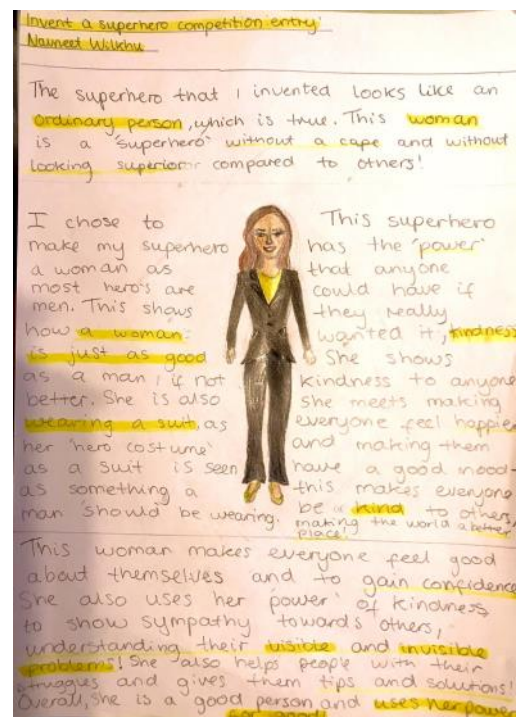 Invent a superhero competition entry:
Navneet Wilkhu
The superhero that I invented looks like an
ordinary person, which is true. This woman
is a 'superhero' without a cape and without
looking superior compared to others!
I chose to
make my superhero
a woman as
most hero's are
men. This shows
how a woman
is just as good
as a man, if not
better. She is also
wearing a suit, as
her 'hero costume'
as a suit is seen
as something a
man 'should' be wearing.
This superhero
has the 'power'
that anyone
could have if
they really
wanted it, kindness
She shows
kindness to anyone
she meets making
everyone feel happier
and making them
have a good mood-
this makes everyone
be kind to others,
making the world a better
place!
This woman makes everyone feel good
about themselves and to gain confidence
She also uses her 'power' of kindness
to show sympathy towards others,
understanding their visible and invisible
problems! She also helps people with their
struggles and gives them tips and solutions!
Overall, she is a good person and uses her power
for good!